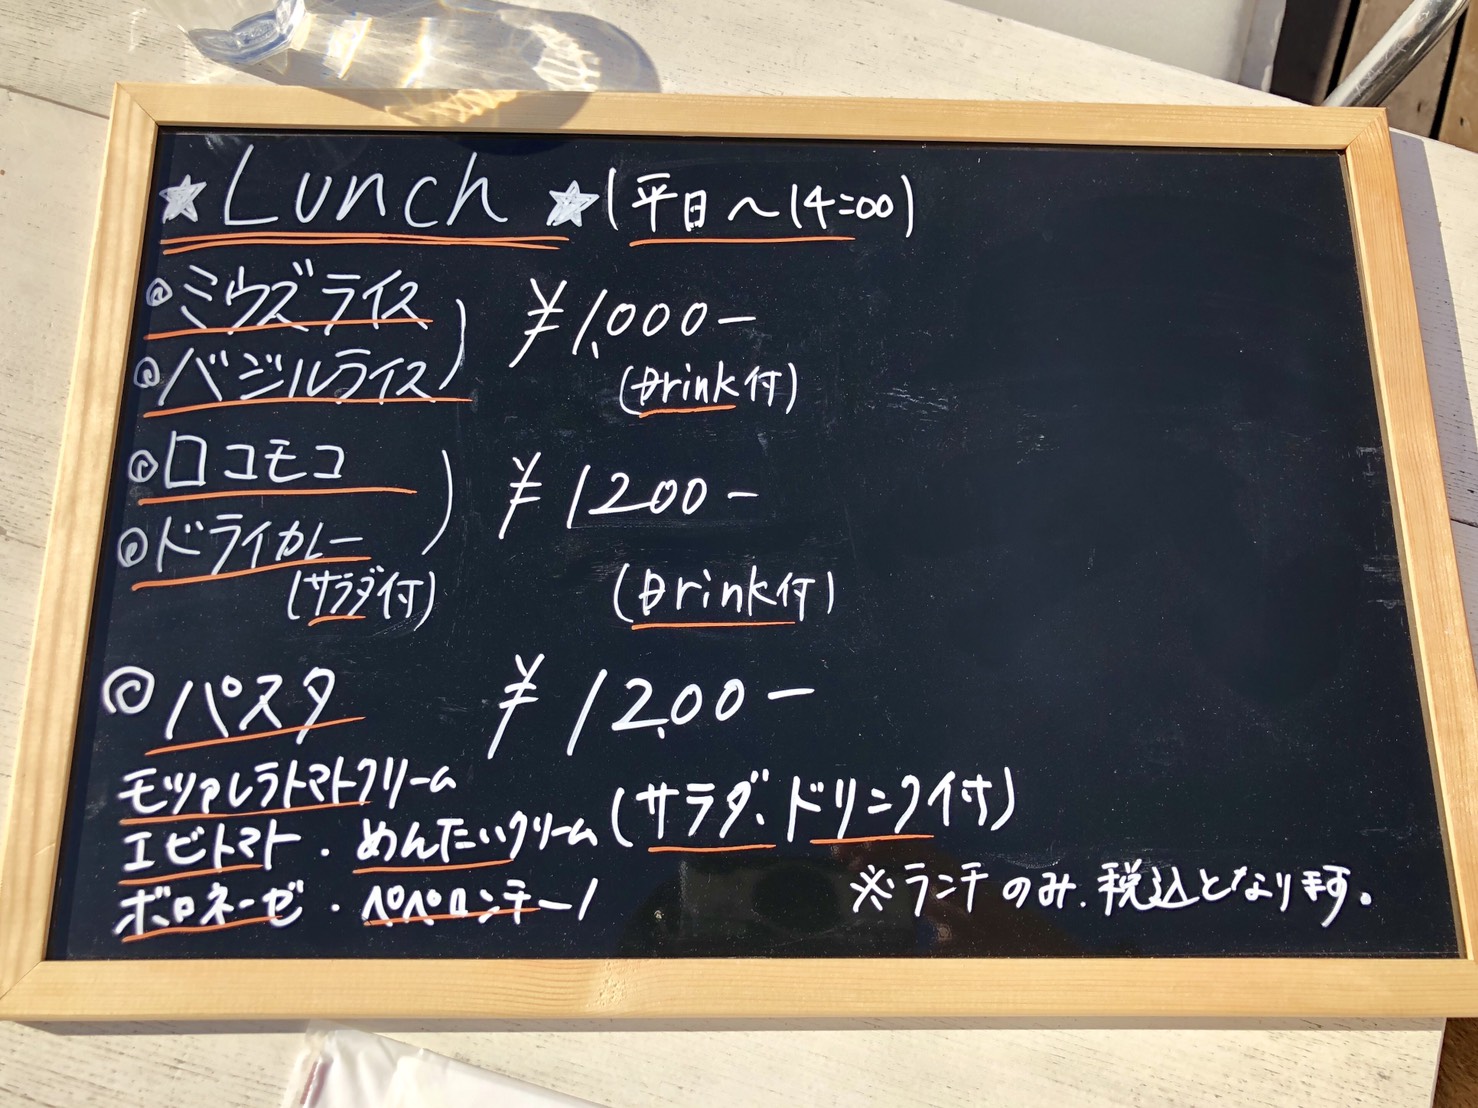 ★Lunch★(平日～14:00)
◎ミウズライス
◎バジルライス
¥1,000-
(Drink付)
◎ロコモコ
◎ドライカレー
(サラダ付)
¥1200-
(Drink付)
◎パスタ ¥1200-
モツァレラトマトクリーム
エビトマト・めんたいクリーム
ボロネーゼ・ペペロンチーノ
(サラダ、ドリンク付)
※ランチのみ、税込となります。